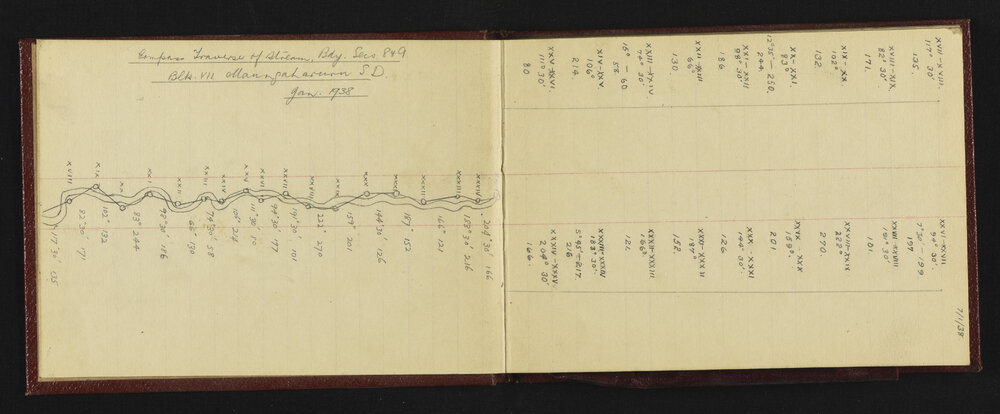 Compass Traverse of Stream, Bdy. Secs 8 & 9
Blk. VII Maungaharuru S.D.
Jan. 1938
XVIII
XIX
XX
XXI
XXII
XXIII
XXIV
XXV
XXVI
XXVII
XXVIII
XXIX
XXX
XXXI
XXXII
XXXIII
XXXIV
117° 30' 135
82° 30' 171
102° 132
93° 244
98° 30' 186
66° 130
74° 30' 58
106° 214
111° 30' 80
94° 30' 197
191° 30' 101
222° 270
159° 201
144° 30' 126
187° 152
166° 121
183° 30' 216
204° 30' 166
7/1/38
XVII-XVIII.
117° 30'
135.
XVIII-XIX.
82° 30'.
171.
XIX-XX.
102°
132
XX-XXI.
93°
12° 35' - 250.
244
XXI-XXII
98° 30'.
186
XXII-XXIII
66°
130
XXIII-XXIV.
74° 30'
15° - 60
58
XXIV-XXV
106
214.
XXV-XXVI.
111° 30'
80
XXVI-XXVII
197
XXVII-XXVIII
191° 30'
101.
XXVIII-XXIX
222°
270.
XXIX-XXX
159°.
201
XXX-XXXI
144° 30'.
126
XXXI-XXXII
187°
152.
XXXII-XXXIII.
166°
121.
XXXIII-XXXIV
183° 30'.
216
XXXIV-XXXV.
204° 30'
166.